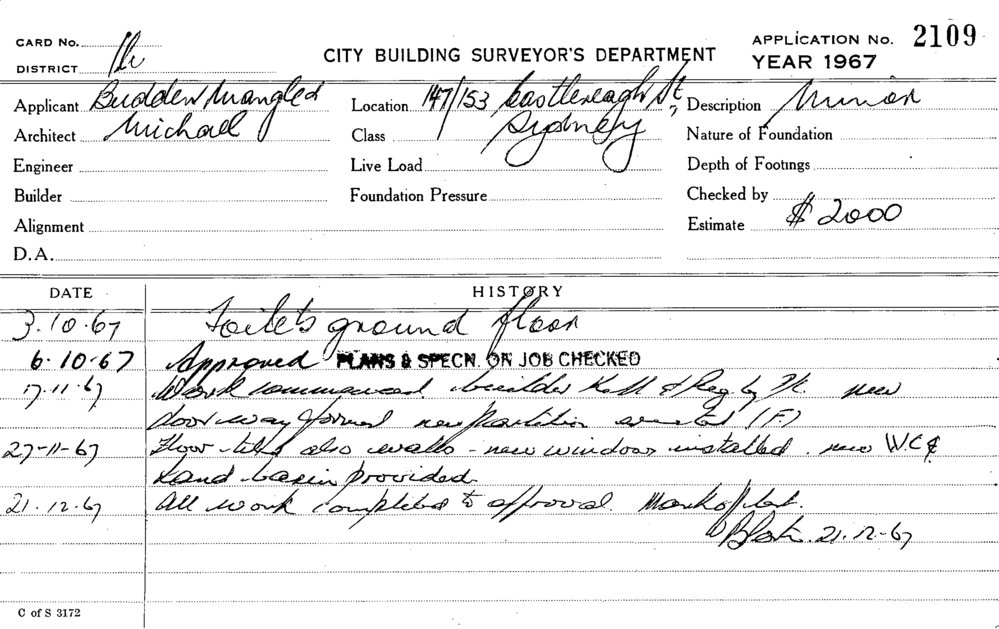 CARD No.
DISTRICT
CITY BUILDING SURVEYOR'S DEPARTMENT
APPLICATION No. 2109
YEAR 1967
Applicant Budden Nangled Location 147/153 Castlereagh St, Description Minor
Architect Michael Class Sydney Nature of Foundation
Engineer Live Load Depth of Footings
Builder Foundation Pressure Checked by
Alignment Estimate $ 2000
D.A.
DATE HISTORY
3.10.67 Toilets ground floor
6.10.67 Approved PLANS & SPECN. ON JOB CHECKED
17.11.67 Work commenced. builder Kell & Rigby new
doorway formed new partition erected (F.)
27-11-67 Floor tiled also walls - new window installed. new W.C &
hand basin provided.
21.12.67 All work completed to approval. Mark off plat.
21.12-67
C of S 3172